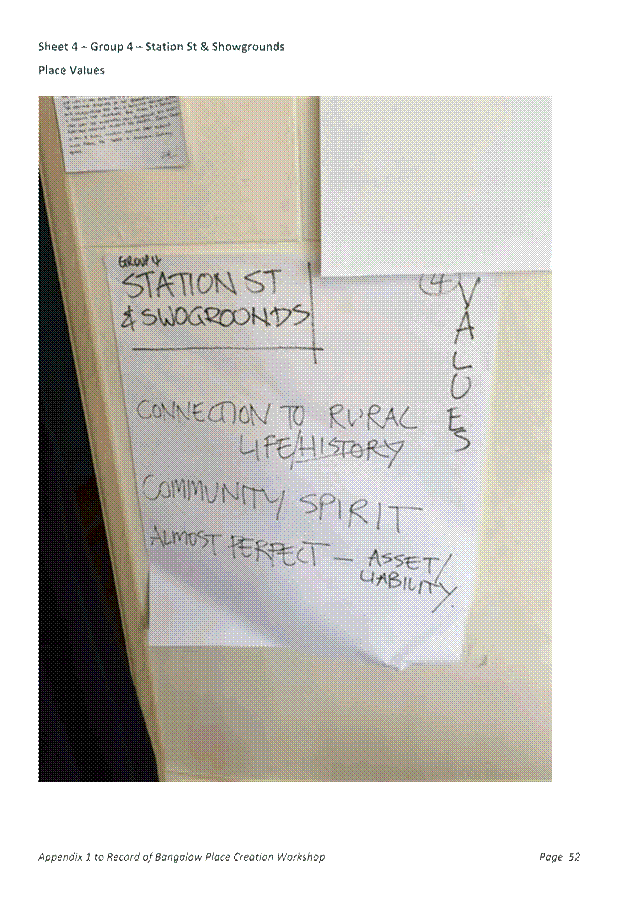 Sheet 4 – Group 4 – Station St & Showgrounds
Place Values
GROUP 4
STATION ST
& SWOGROONDS
(4) VALUES
CONNECTION TO RURAL
LIFE/HISTORY
COMMUNITY SPIRIT
ALMOST PERFECT — ASSET/
LIABILITY.
Appendix 1 to Record of Bangalow Place Creation Workshop Page 52